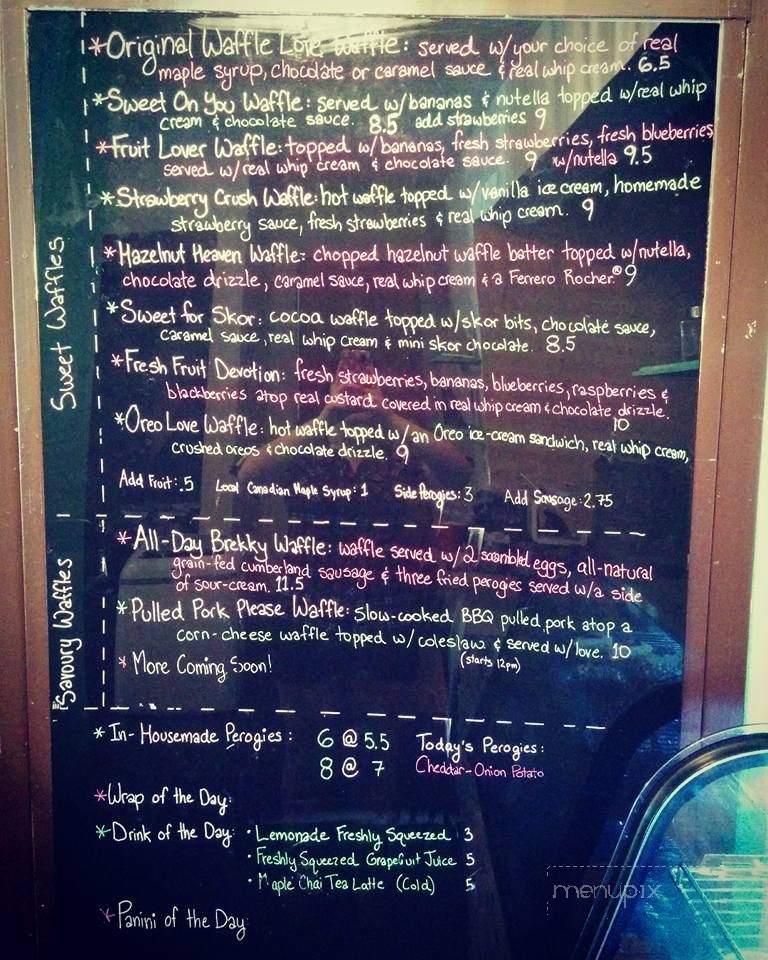 Sweet Waffles
*Original Waffle Love Waffle: served w/your choice of real
maple syrup, chocolate or caramel sauce & real whip cream. 6.5
*Sweet On You Waffle: served w/bananas & nutella topped w/real whip
cream & chocolate sauce. 8.5 add strawberries 9
*Fruit Lover Waffle: topped w/bananas, fresh strawberries, fresh blueberries
served w/real whip cream & chocolate sauce. 9 w/nutella 9.5
*Strawberry Crush Waffle: hot waffle topped w/vanilla ice cream, homemade
strawberry sauce, fresh strawberries & real whip cream. 9
*Hazelnut Heaven Waffle: chopped hazelnut waffle batter topped w/nutella,
chocolate drizzle, caramel sauce, real whip cream & a Ferrero Rocher.® 9
*Sweet for Skor: cocoa waffle topped w/skor bits, chocolate sauce,
caramel sauce, real whip cream & mini skor chocolate. 8.5
*Fresh Fruit Devotion: fresh strawberries, bananas, blueberries, raspberries &
blackberries atop real custard covered in real whip cream & chocolate drizzle.
10
*Oreo Love Waffle: hot waffle topped w/an Oreo ice-cream sandwich, real whip cream,
crushed oreos & chocolate drizzle. 9
Add Fruit: .5 Local Canadian Maple Syrup: 1 Side Perogies: 3 Add Sausage: 2.75
Savoury Waffles
*All-Day Brekky Waffle: waffle served w/2 scrambled eggs, all-natural
grain-fed cumberland sausage & three fried perogies served w/a side
of sour-cream. 11.5
*Pulled Pork Please Waffle: slow-cooked BBQ pulled pork atop a
corn-cheese waffle topped w/coleslaw & served w/love. 10
(starts 12pm)
*More Coming Soon!
*In-Housemade Perogies: 6 @ 5.5 Today's Perogies:
8 @ 7 Cheddar-Onion Potato
*Wrap of the Day:
*Drink of the Day: • Lemonade Freshly Squeezed 3
• Freshly Squeezed Grapefruit Juice 5
• Maple Chai Tea Latte (Cold) 5
*Panini of the Day
menupix